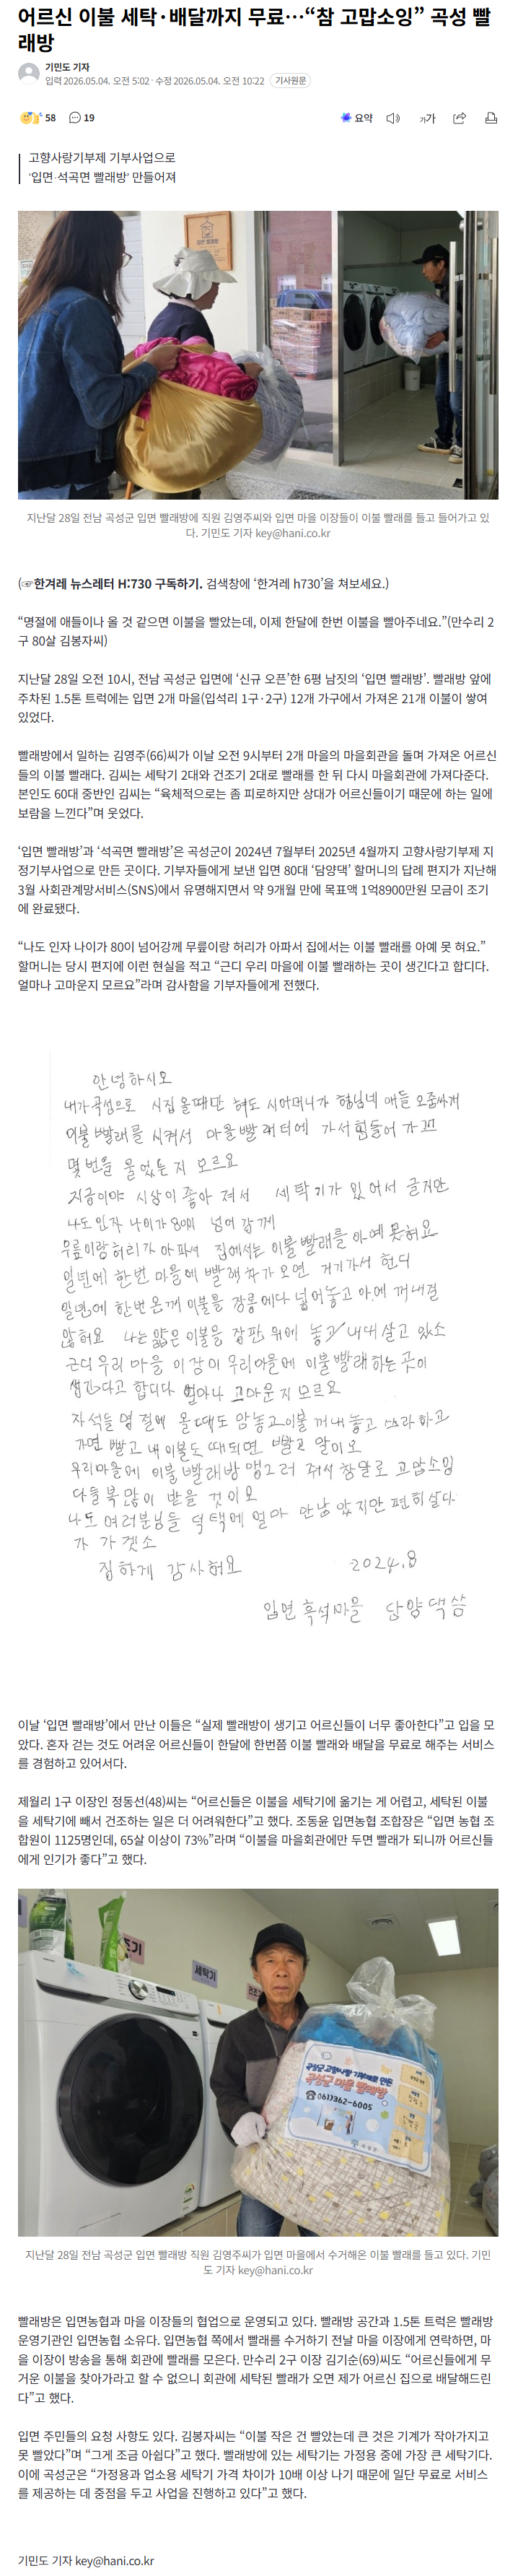 어르신 이불 세탁·배달까지 무료…“참 고맙소잉” 곡성 빨
래방
기민도 기자
입력 2026.05.04. 오전 5:02 · 수정 2026.05.04. 오전 10:22 기사원문
58 19 요약 가가
고향사랑기부제 기부사업으로
‘입면·석곡면 빨래방’ 만들어져
지난달 28일 전남 곡성군 입면 빨래방에 직원 김영주씨와 입면 마을 이장들이 이불 빨래를 들고 들어가고 있
다. 기민도 기자 key@hani.co.kr
(☞한겨레 뉴스레터 H:730 구독하기. 검색창에 ‘한겨레 h730’을 쳐보세요.)
“명절에 애들이나 올 것 같으면 이불을 빨았는데, 이제 한달에 한번 이불을 빨아주네요.”(만수리 2
구 80살 김봉자씨)
지난달 28일 오전 10시, 전남 곡성군 입면에 ‘신규 오픈’한 6평 남짓의 ‘입면 빨래방’. 빨래방 앞에
주차된 1.5톤 트럭에는 입면 2개 마을(입석리 1구·2구) 12개 가구에서 가져온 21개 이불이 쌓여
있었다.
빨래방에서 일하는 김영주(66)씨가 이날 오전 9시부터 2개 마을의 마을회관을 돌며 가져온 어르신
들의 이불 빨래다. 김씨는 세탁기 2대와 건조기 2대로 빨래를 한 뒤 다시 마을회관에 가져다준다.
본인도 60대 중반인 김씨는 “육체적으로는 좀 피로하지만 상대가 어르신들이기 때문에 하는 일에
보람을 느낀다”며 웃었다.
‘입면 빨래방’과 ‘석곡면 빨래방’은 곡성군이 2024년 7월부터 2025년 4월까지 고향사랑기부제 지
정기부사업으로 만든 곳이다. 기부자들에게 보낸 입면 80대 ‘담양댁’ 할머니의 답례 편지가 지난해
3월 사회관계망서비스(SNS)에서 유명해지면서 약 9개월 만에 목표액 1억8900만원 모금이 조기
에 완료됐다.
“나도 인자 나이가 80이 넘어강께 무릎이랑 허리가 아파서 집에서는 이불 빨래를 아예 못 혀요.”
할머니는 당시 편지에 이런 현실을 적고 “근디 우리 마을에 이불 빨래하는 곳이 생긴다고 합디다.
얼마나 고마운지 모르요”라며 감사함을 기부자들에게 전했다.
안녕하시오
내가 곡성으로 시집 올때만 혀도 시어머니가 형님네 애들 오줌싸게
이불 빨래를 시켜서 마을 빨래터에 가서 힘들어 가꼬
몇번을 울었는지 모르요
지금이야 시상이 좋아 져서 세탁기가 있어서 글지만
나도 인자 나이가 80이 넘어 강께
무릎이랑 허리가 아파서 집에서는 이불빨래를 아예 못혀요
일년에 한번 마을에 빨래차가 오면 거기가서 헌디
일년에 한번 온께 이불을 장롱에다 넣어놓고 아예 꺼내질
않혀요 나는 얇은 이불을 장판 위에 놓고 내내 살고 있소
근디 우리 마을 이장이 우리마을에 이불빨래 하는 곳이
생긴다고 합디다 얼마나 고마운지 모르요
자석들 명절에 올때도 맘놓고 이불 꺼내 놓고 쓰라하고
가면 빨고 내이불도 때되면 빨고 말이오
우리마을에 이불 빨래방 맹그러 줘서 참말로 고맙소잉
다들 복 많이 받을 것이오
나도 여러분님들 덕택에 얼마 안남았지만 편히 살다
가 가겟소
징하게 감사혀요 2024.8
입면 흑석마을 담양댁 씀
이날 ‘입면 빨래방’에서 만난 이들은 “실제 빨래방이 생기고 어르신들이 너무 좋아한다”고 입을 모
았다. 혼자 걷는 것도 어려운 어르신들이 한달에 한번쯤 이불 빨래와 배달을 무료로 해주는 서비스
를 경험하고 있어서다.
제월리 1구 이장인 정동선(48)씨는 “어르신들은 이불을 세탁기에 옮기는 게 어렵고, 세탁된 이불
을 세탁기에 빼서 건조하는 일은 더 어려워한다”고 했다. 조동윤 입면농협 조합장은 “입면 농협 조
합원이 1125명인데, 65살 이상이 73%”라며 “이불을 마을회관에만 두면 빨래가 되니까 어르신들
에게 인기가 좋다”고 했다.
세탁기
곡성군 고향사랑 기부제로 만든
곡성군 마을 빨래방
☎061)362-6005
지난달 28일 전남 곡성군 입면 빨래방 직원 김영주씨가 입면 마을에서 수거해온 이불 빨래를 들고 있다. 기민
도 기자 key@hani.co.kr
빨래방은 입면농협과 마을 이장들의 협업으로 운영되고 있다. 빨래방 공간과 1.5톤 트럭은 빨래방
운영기관인 입면농협 소유다. 입면농협 쪽에서 빨래를 수거하기 전날 마을 이장에게 연락하면, 마
을 이장이 방송을 통해 회관에 빨래를 모은다. 만수리 2구 이장 김기순(69)씨도 “어르신들에게 무
거운 이불을 찾아가라고 할 수 없으니 회관에 세탁된 빨래가 오면 제가 어르신 집으로 배달해드린
다”고 했다.
입면 주민들의 요청 사항도 있다. 김봉자씨는 “이불 작은 건 빨았는데 큰 것은 기계가 작아가지고
못 빨았다”며 “그게 조금 아쉽다”고 했다. 빨래방에 있는 세탁기는 가정용 중에 가장 큰 세탁기다.
이에 곡성군은 “가정용과 업소용 세탁기 가격 차이가 10배 이상 나기 때문에 일단 무료로 서비스
를 제공하는 데 중점을 두고 사업을 진행하고 있다”고 했다.
기민도 기자 key@hani.co.kr